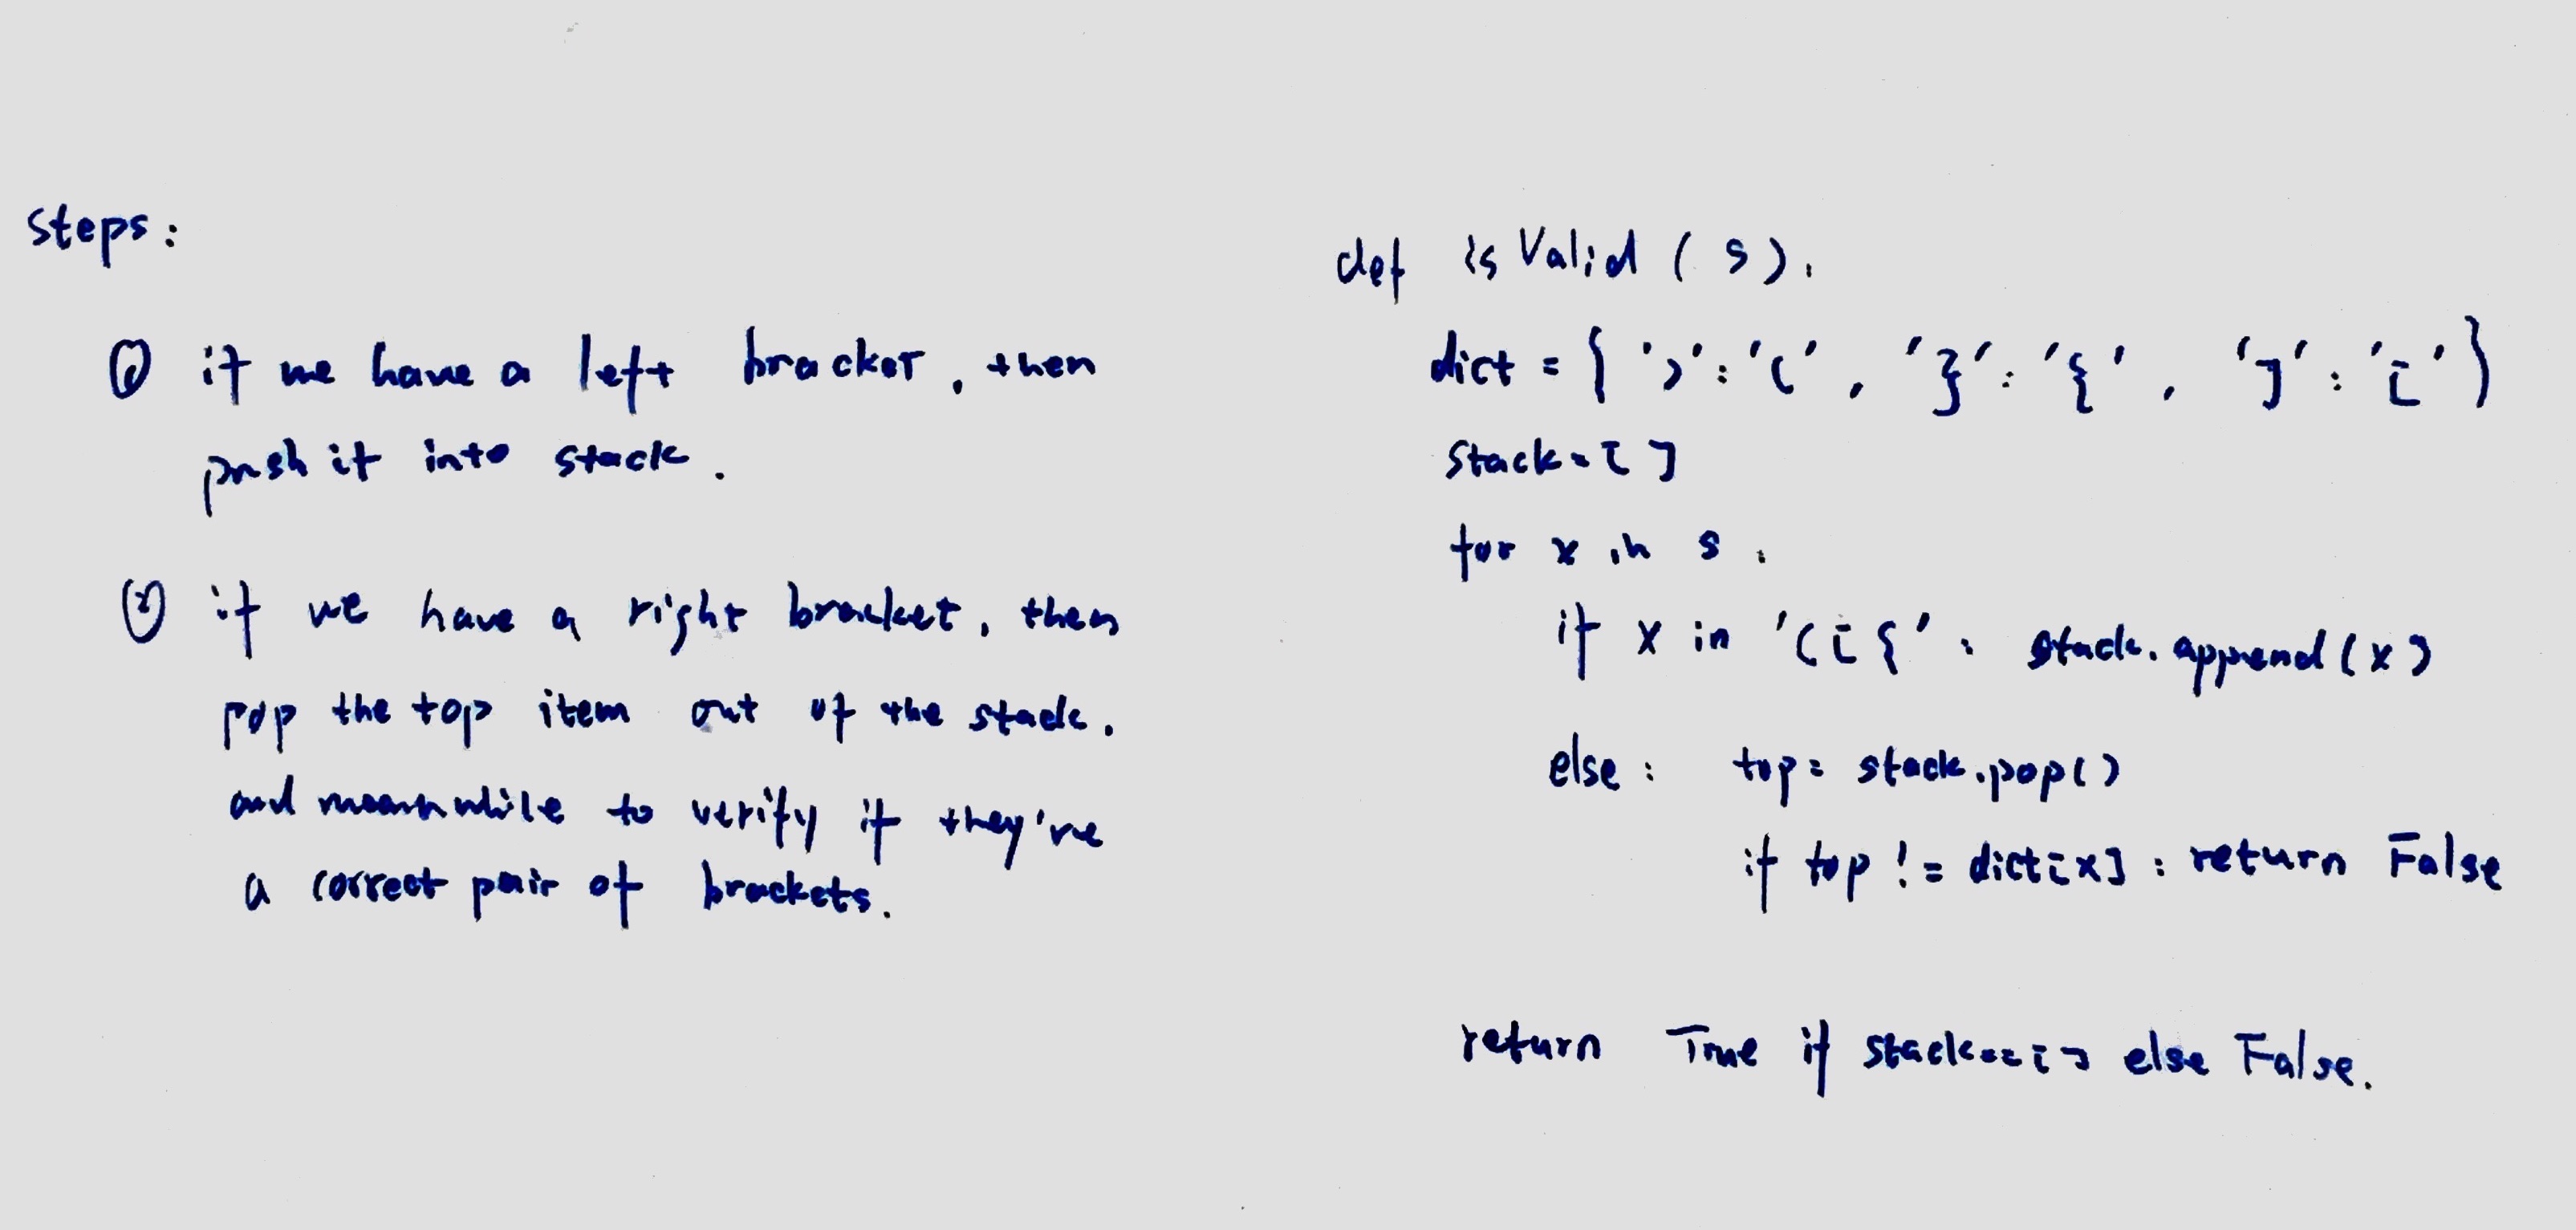 Steps:
① if we have a left bracket, then
push it into stack.
② if we have a right bracket, then
pop the top item out of the stack.
and meanwhile to verify if they're
a correct pair of brackets.
def isValid(s):
dict = { ')':'(', '}':'{', ']':'[' }
stack=[]
for x in s:
if x in '([{': stack.append(x)
else: top= stack.pop()
if top != dict[x]: return False
return True if stack==[] else False.